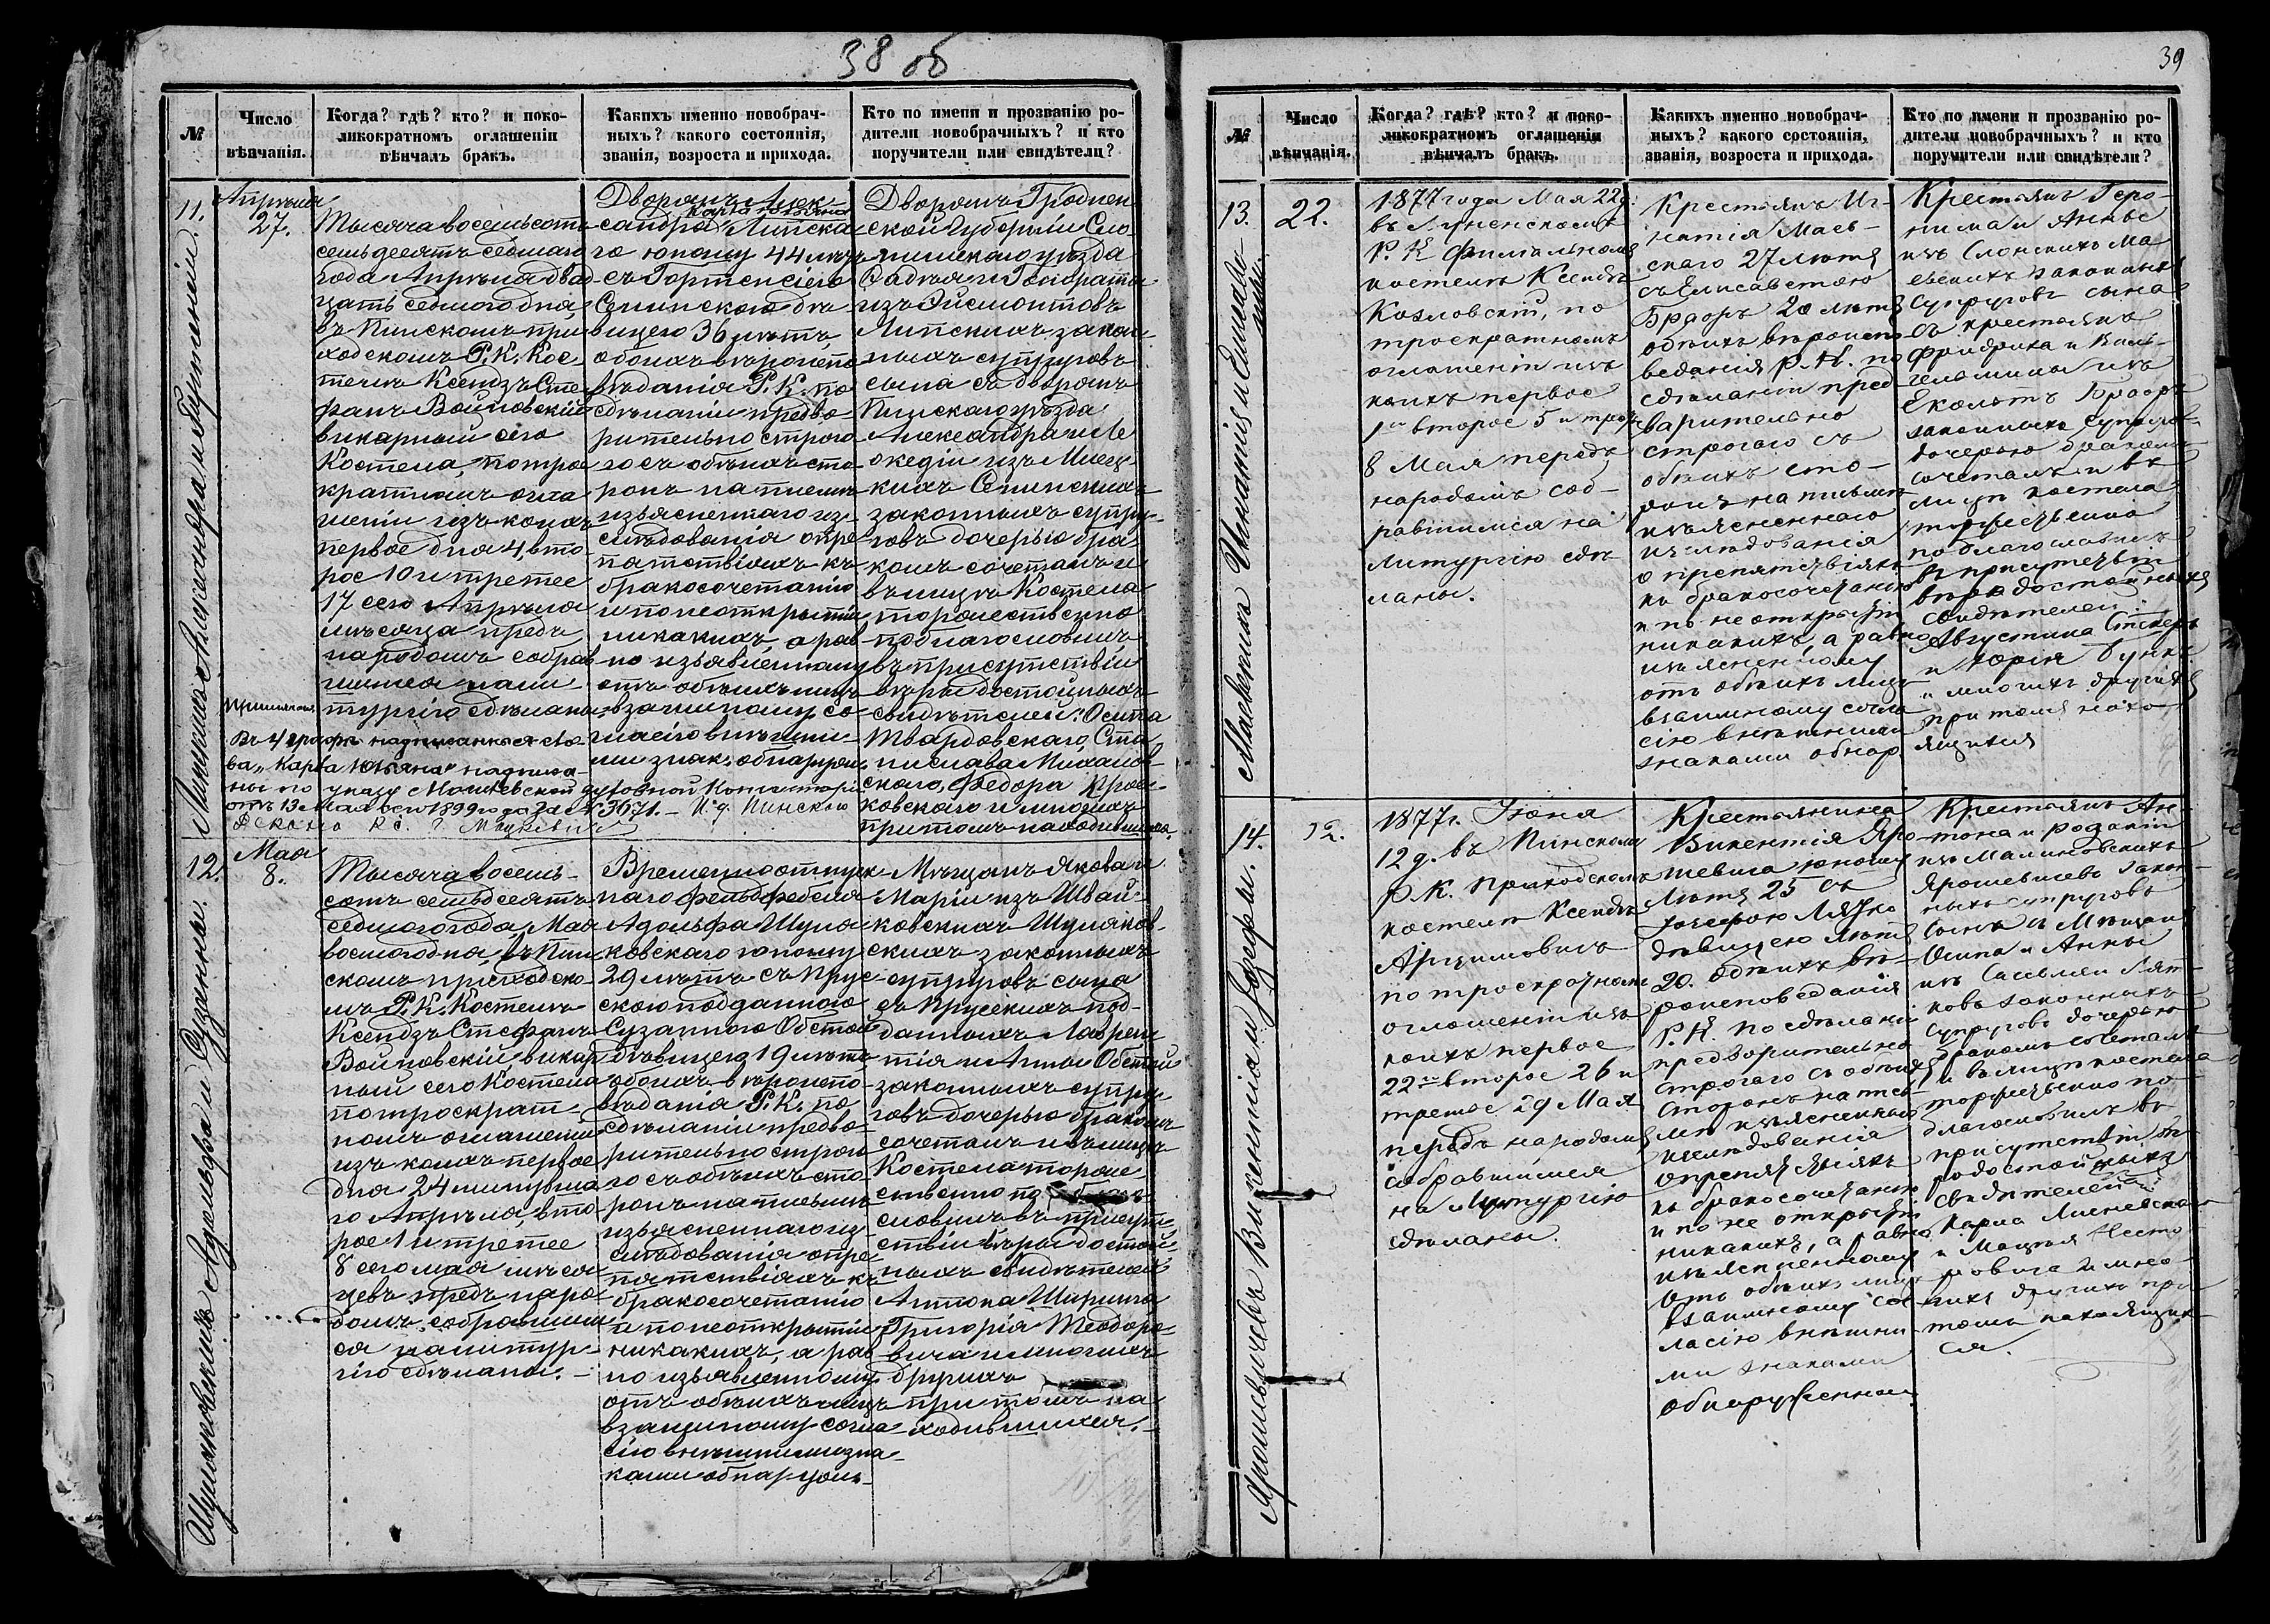 38 об
№
Число
вѣнчанія.
Когда? гдѣ? кто? и поко-
ликократномъ оглашеніи
вѣнчалъ бракъ.
Какихъ именно новобрач-
ныхъ? какого состоянія,
званія, возроста и прихода.
Кто по имени и прозванію ро-
дители новобрачныхъ? и кто
поручители или свидѣтели?
11.
Александра и
Апрѣля
27.
Тысяча восемьсотъ
семьдесятъ седьмаго
года Апрѣля двад-
цать седьмого дня,
въ Пинскомъ при
ходскомъ Р. К. Кос-
телѣ Ксендзъ Сте
фанъ Войновскій
викарный сего
Костела, по трое
кратномъ огла
шеніи изъ коихъ
первое дня 4, вто-
рое 10 и третее
17 сего Апрѣля
мѣсяца предъ
народомъ собрав
шимся на ли
тургію сдѣланы
Дворянъ Алек-
Карла Юльяна
сандра Липска
го юношу 44 лѣтъ
съ Гортенсіею
Сепинскою дѣ
вицею 36 лѣтъ,
обоихъ вѣроиспо
вѣданія Р. К. по
сдѣланіи предва
рительно строго
го съ обѣихъ сто
ронъ на письмѣ
изъясненнаго из-
слѣдованія о пре
пятствіяхъ къ
бракосочетанію
и по неоткрытіи
никакихъ, а рав
но изъявленному
отъ обѣихъ лицъ
взаимному со
гласію внѣшни
ми знак. обнаружен.
Дворянъ Гроднен
ской Губерніи Сло
нимскаго уѣзда
Фадѣя и Гонораты
изъ Эйсмонтовъ
Липскихъ закон-
ныхъ супруговъ
сына съ дворянъ
Пинскаго уѣзда
Александра и Ле
окадіи изъ
кихъ Сепинскихъ
законныхъ супру-
говъ дочерью бра
комъ сочеталъ и
въ лицѣ Костела
торжественно
поблагословилъ,
въ присутствіи
вѣры достойныхъ
свидѣтелей: Осипа
Твардовскаго, Ста
нислава Михалов-
скаго, Федора
ковскаго и многихъ
при томъ находившихся.
Примѣчаніе
Въ 4 графѣ надписанныя сло-
ва "Карла Юльяна" надписа-
ны по указу Могилевской духовной Консисторіи
отъ 13 Мая 1899 года за № 3671. — И. д. Пинскаго
Декана Кс.
12.
Шуляковскихъ Адольфа и Сузанны.
Мая
8.
Тысяча восемь-
сотъ семьдесятъ
седьмого года, Мая
восьмого дня, въ Пин
скомъ приходско-
мъ Р. К. Костелѣ
Ксендзъ Стефанъ
Войновскій, викар
ный сего Костела
по троекрат-
номъ оглашеніи
изъ коихъ первое
дня 24 минувша
го Апрѣля, вто
рое 1 и третее
8 сего мая мѣся
цевъ предъ наро
домъ собравшим
ся на литур-
гію сдѣланы. —
Временноотпуск
наго фельдфебеля
Адольфа Шуля
ковскаго юношу
29 лѣтъ съ Прус-
скою подданною
Сузанною Обстой
дѣвицею 19 лѣтъ
обоихъ вѣроиспо-
вѣданія Р. К. по
сдѣланіи предва-
рительно строга
го съ обѣихъ сто-
ронъ на письмѣ
изъясненнаго из-
слѣдованія о пре
пятствіяхъ къ
бракосочетанію
и по неоткрытіи
никакихъ, а рав
но изъявленному
отъ обѣихъ лицъ
взаимному согла-
сію внѣшними зна-
ками обнаружен-
Мѣщанъ Якова и
Маріи изъ Швай-
ковскихъ Шуляков-
скихъ законныхъ
супруговъ сына
съ Прусскихъ под-
данныхъ Лаврен
тія и Анны Обстой
законныхъ супру-
говъ дочерью бракомъ
сочеталъ и въ лицѣ
Костела торже
ственно по
словилъ въ присут
ствіи вѣры достой-
ныхъ свидѣтелей
Антона Ширина
Григорія Теодоро-
вича и многихъ
другихъ
при томъ на-
ходившихся. —
39
№
Число
вѣнчанія.
Когда? гдѣ? кто? и поко-
ликократномъ оглашеніи
вѣнчалъ бракъ.
Какихъ именно новобрач-
ныхъ? какого состоянія,
званія, возроста и прихода.
Кто по имени и прозванію ро-
дители новобрачныхъ? и кто
поручители или свидѣтели?
13.
Маевскихъ Игнатія и Елисаве-
22.
1877 года Мая 22 д:
въ Лунненскомъ
Р. К. Филіальномъ
костелѣ Ксендзъ
Козловскій, по
троекратномъ
оглашеніи изъ
коихъ первое
1го второе 5 и третее
8 Мая передъ
народомъ соб-
равшимся на
Литургію сдѣ
ланы.
Крестьянъ Иг-
натія Маев-
скаго 27 лѣтъ
съ Елисаветою
Брдоръ 20 лѣтъ
обѣихъ вѣроиспо
веданія Р. К. по
сдѣланіи пред
варительно
строгаго съ
обѣихъ сто-
ронъ на письмѣ
изъясненнаго
изслѣдованія
о препятствіяхъ
къ бракосочетанію
и по не открытіи
никакихъ, а равно
изъясненному
отъ обѣихъ лицъ
взаимному согла
сію внѣшними
знаками обнар
Крестьянъ Геро-
нима и Анны
изъ Слонскихъ Ма
евскихъ законныхъ
Супруговъ сына
съ крестьянъ
Фридриха и Виль-
гельмины изъ
законныхъ Супругов-
дочерью бракомъ
сочеталъ и въ
лицѣ костела
торжественно
поблагословилъ
въ присутствіи
вѣродостойныхъ
Свидѣтелей:
Августина
и Юрія
и многихъ другихъ
при томъ нахо
дящихся
14.
Ярошевичевъ Викентія и Юзефы.
12.
1877 г. Іюня
12 д. въ Пинскомъ
Р. К. Приходскомъ
костелѣ Ксендзъ
Арцимовичъ
по троекратномъ
оглашеніи изъ
коихъ первое
22го второе 26 и
третье 29 Мая
передъ народомъ
собравшимся
на Литургію
сдѣланы.
Крестьянина
Викентія Яро
шевича юношу
лѣтъ 25 съ
Юзефою Лятко
дѣвицею лѣтъ
20. обѣихъ вѣ-
роисповеданія
Р. К. по сдѣланіи
предворительно
строгаго съ обѣихъ
сторонъ на пись-
мѣ изъясненнаго
изслѣдованія
о препятствіяхъ
къ бракосочетанію
и по не открытіи
никакихъ, а равно
изъясненному
отъ обѣихъ лицъ
взаимному сог
ласію внѣшни
ми знаками
обнаруженном
Крестьянъ Ан-
тона и Розаліи
изъ Малиновскихъ
Ярошевичевъ закон-
ныхъ супруговъ
сына съ Мѣщанъ
Осипа и Анны
изъ Лят-
ковъ законныхъ
Супруговъ дочерью
бракомъ сочеталъ
и въ лицѣ костела
торжественно по
благословилъ въ
присутствіи вѣ
родостойныхъ
Свидѣтелей
Карла
и Мацея Несто
ровича и мно-
гихъ другихъ при
томъ находящих-
ся.